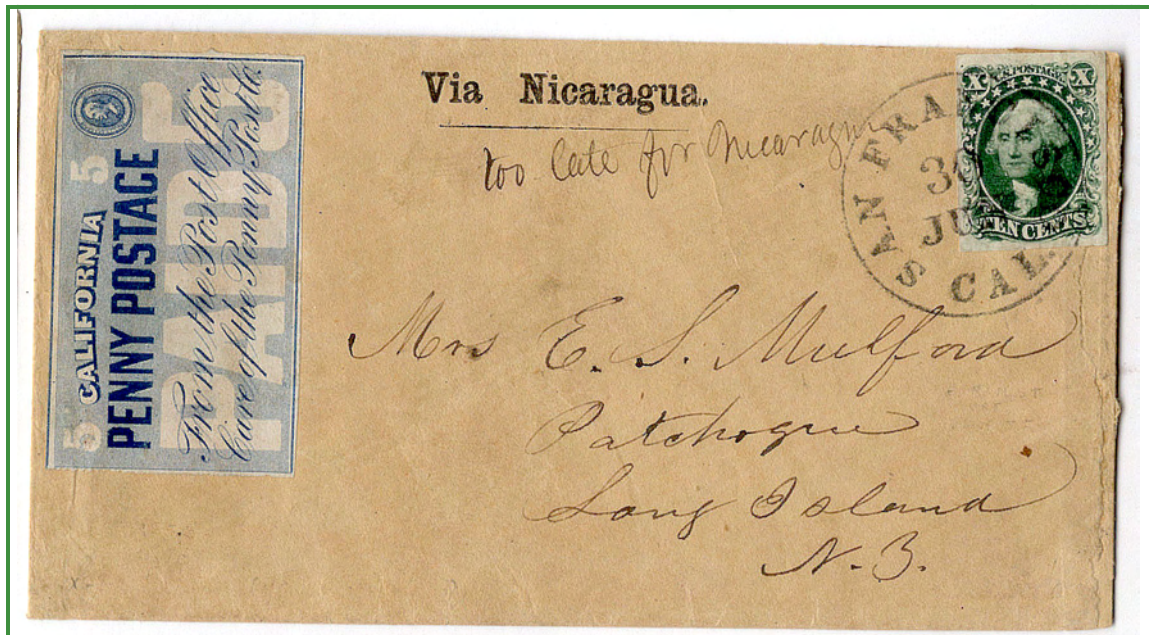 5 CALIFORNIA 5
PENNY POSTAGE
PAID 5
From the Post Office
Care of the Penny Post Co.
Via Nicaragua.
too late for Nicaragua
SAN FRAN
30
JU
CAL.
X U.S. POSTAGE X
TEN CENTS
Mrs E. S. Mulford
Patchogue
Long Island
N. Y.